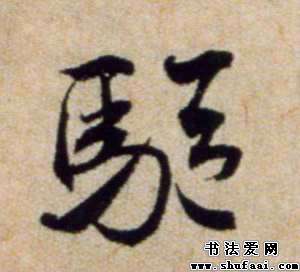 駈
书法爱网
www.shufaai.com